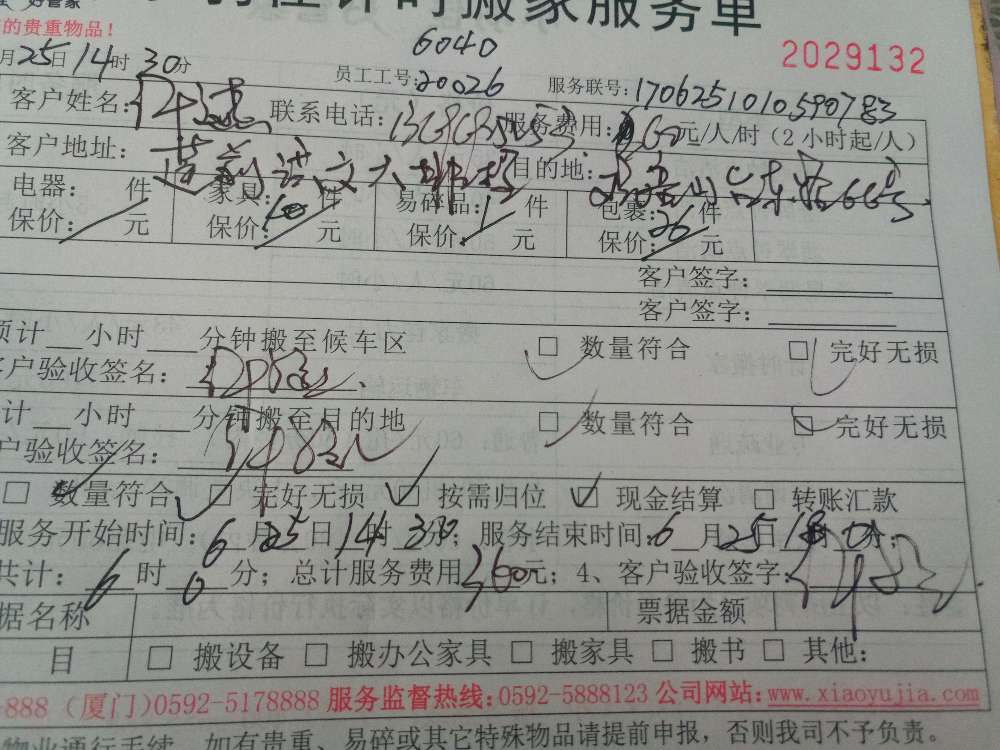 计时搬家服务单
的贵重物品！
6040
2029132
月25日14时30分
员工工号:20026 服务联号:1706251010590783
客户姓名: 联系电话: 服务费用: 60元/人/时（2小时起/人）
客户地址: 目的地:
电器: 件 家具: 件 易碎品: 1 件 包裹: 件
保价: 元 保价: 元 保价: 元 保价: 26 元
客户签字:
客户签字:
预计 小时 分钟搬至候车区 □ 数量符合 □ 完好无损
客户验收签名:
计 小时 分钟搬至目的地 □ 数量符合 □ 完好无损
户验收签名:
□ 数量符合 □ 完好无损 □ 按需归位 □ 现金结算 □ 转账汇款
服务开始时间: 6 月25日14时30分; 服务结束时间: 6 月25日 时 分;
共计: 6 时 0 分; 总计服务费用 360元; 4、客户验收签字
据名称 票据金额
目 □ 搬设备 □ 搬办公家具 □ 搬家具 □ 搬书 □ 其他:
-888（厦门)0592-5178888 服务监督热线:0592-5888123 公司网站:www.xiaoyujia.com
物业通行手续，如有贵重、易碎或其它特殊物品请提前申报，否则我司不予负责。